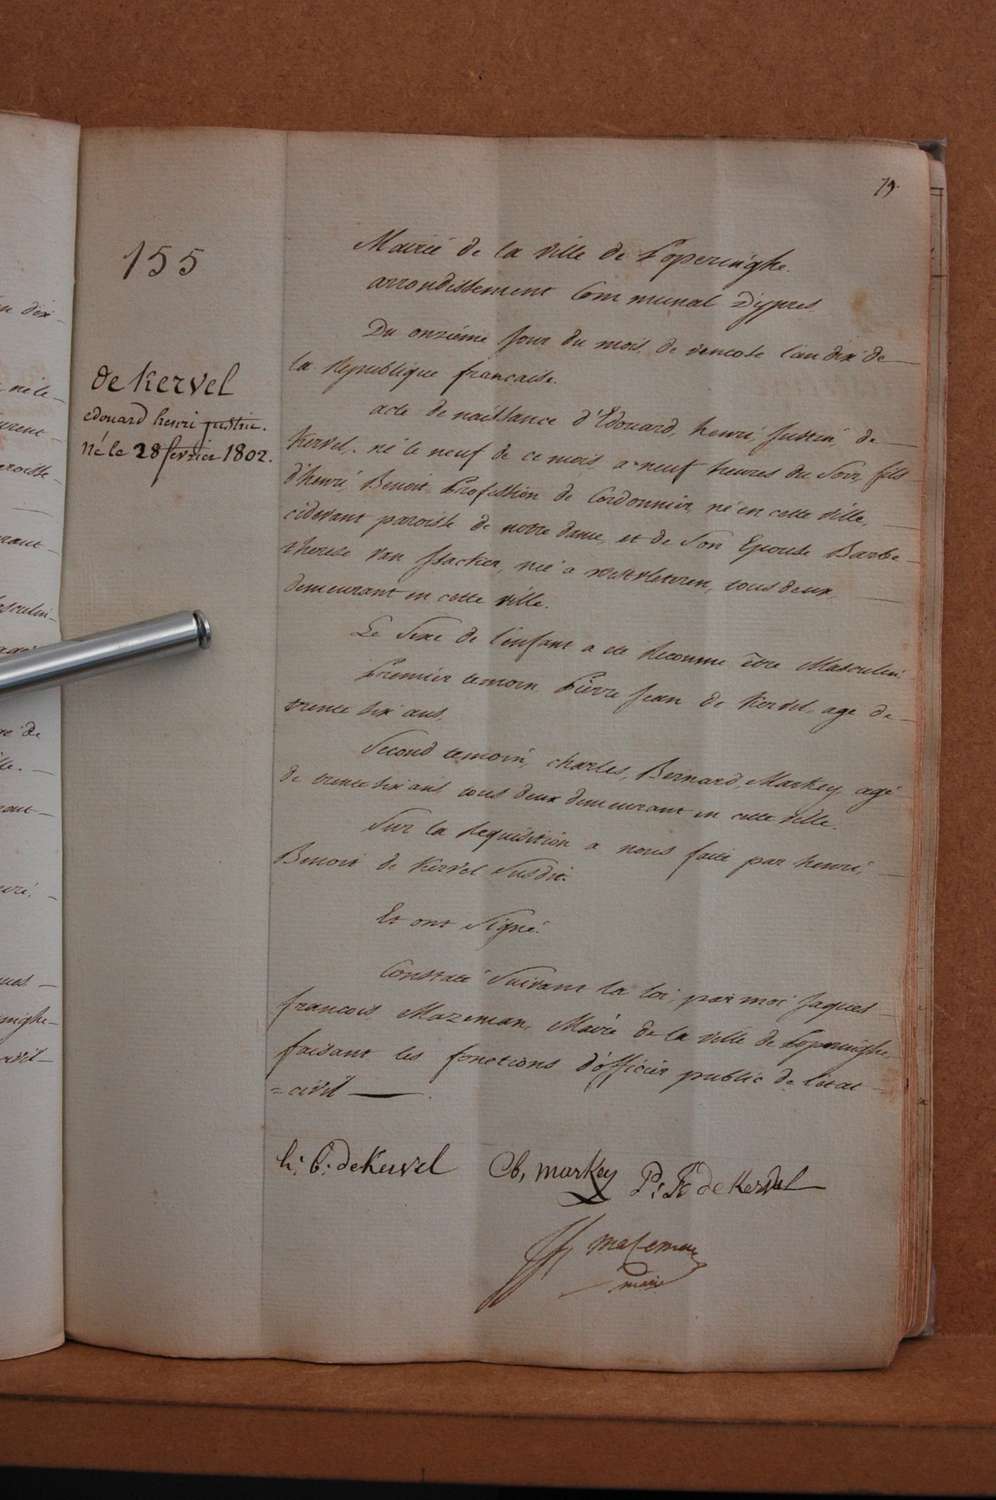 79.
155
de Kervel
edouard henri justin.
né le 28 fevrier 1802.
Mairie de la ville de Poperinghe
arrondissement Communal d'ypres
Du onzième jour du mois de ventose l'an dix de
la République francaise.
acte de naissance d'Edouard, henri, Justin, de
Kervel, né le neuf de ce mois a neuf heures du Soir, fils
d'henri, Benoit, Profession de Cordonnier, né en cette ville,
cidevant paroisse de notre dame, et de Son Epouse Barbe
therese Van Isacker, née a westvleteren, tous deux
demeurant en cette ville.
Le Sexe de l'enfant a été Reconnu être Masculin
Premier temoin Pierre Jean de Kervel, age de
trente six ans,
Second temoin, charles, Bernard, Markey agé
de trente six ans tous deux demeurant en cette ville.
Sur la Requisition a nous faite par henri,
Benoit de Kervel Susdit.
Et ont Signé.
Constaté Suivant la loi, par moi Jaques
francois Mazeman, Maire de la ville de Poperinghe
faisant les fonctions d'officier public de l'etat
= civil
h: b: de Kervel
Cb, markey
P: J: de Kervel
Mazeman
maire